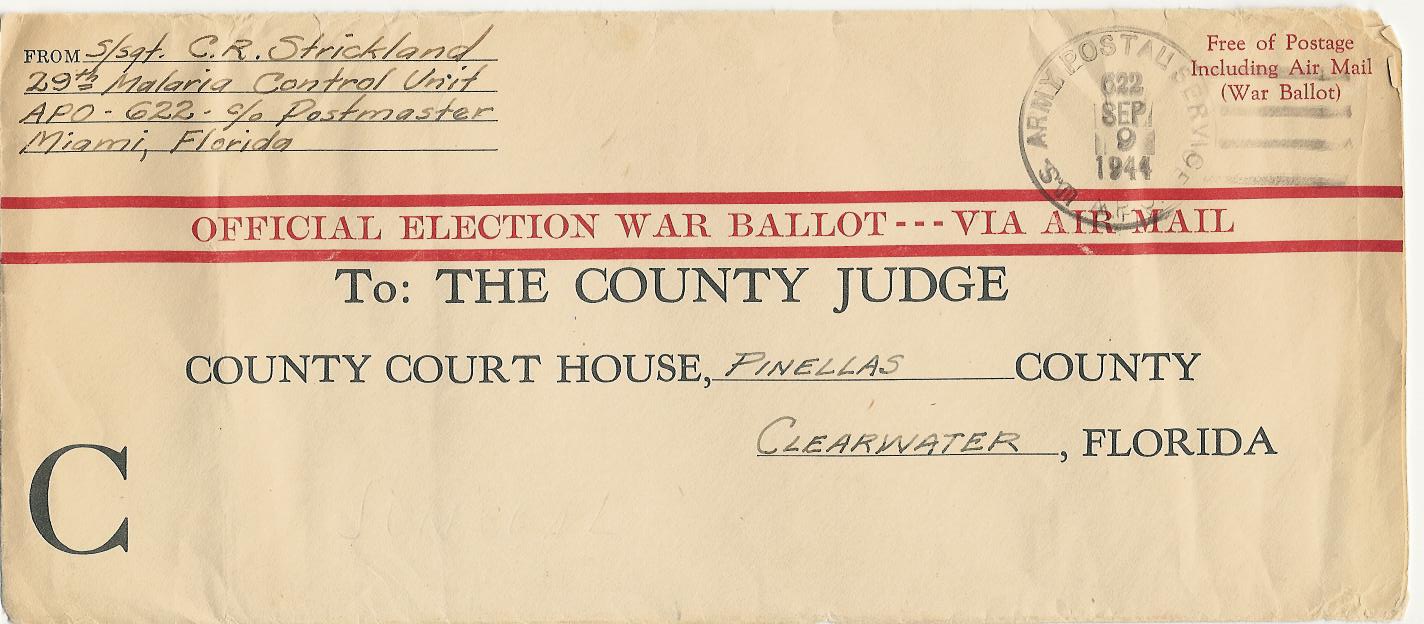 FROM S/Sgt. C.R. Strickland
29th Malaria Control Unit
APO - 622 - c/o Postmaster
Miami, Florida
U.S. ARMY POSTAL SERVICE
622
SEP
9
1944
Free of Postage
Including Air Mail
(War Ballot)
OFFICIAL ELECTION WAR BALLOT---VIA AIR MAIL
To: THE COUNTY JUDGE
COUNTY COURT HOUSE, PINELLAS COUNTY
CLEARWATER, FLORIDA
C